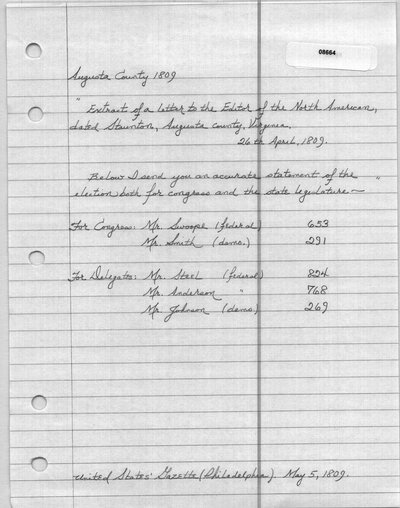 08664
Augusta County 1809
" Extract of a letter to the Editor of the North American,
dated Staunton, Augusta county, Virginia,
26th April, 1809.
Below I send you an accurate statement of the "
election both for congress and the state legislature—
For Congress: Mr. Swoope (federal) 653
Mr. Smith (demo.) 291
For Delegates: Mr. Steel (federal) 824
Mr. Anderson " 768
Mr. Johnson (demo.) 269
United States' Gazette (Philadelphia). May 5, 1809.